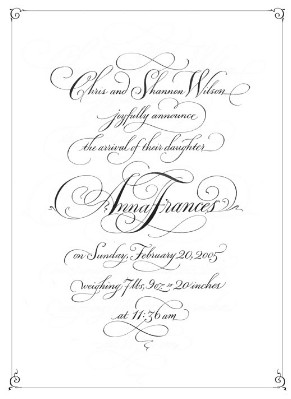 Chris and Shannon Wilson
joyfully announce
the arrival of their daughter
Anna Frances
on Sunday, February 20, 2005
weighing 7 lbs, 9 oz ~ 20 inches
at 11:36 am